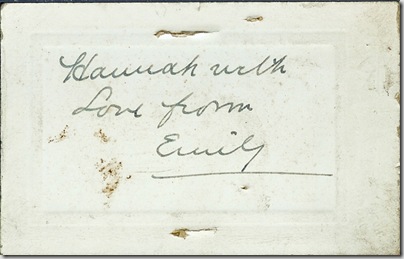 Hannah with
Love from
Emily